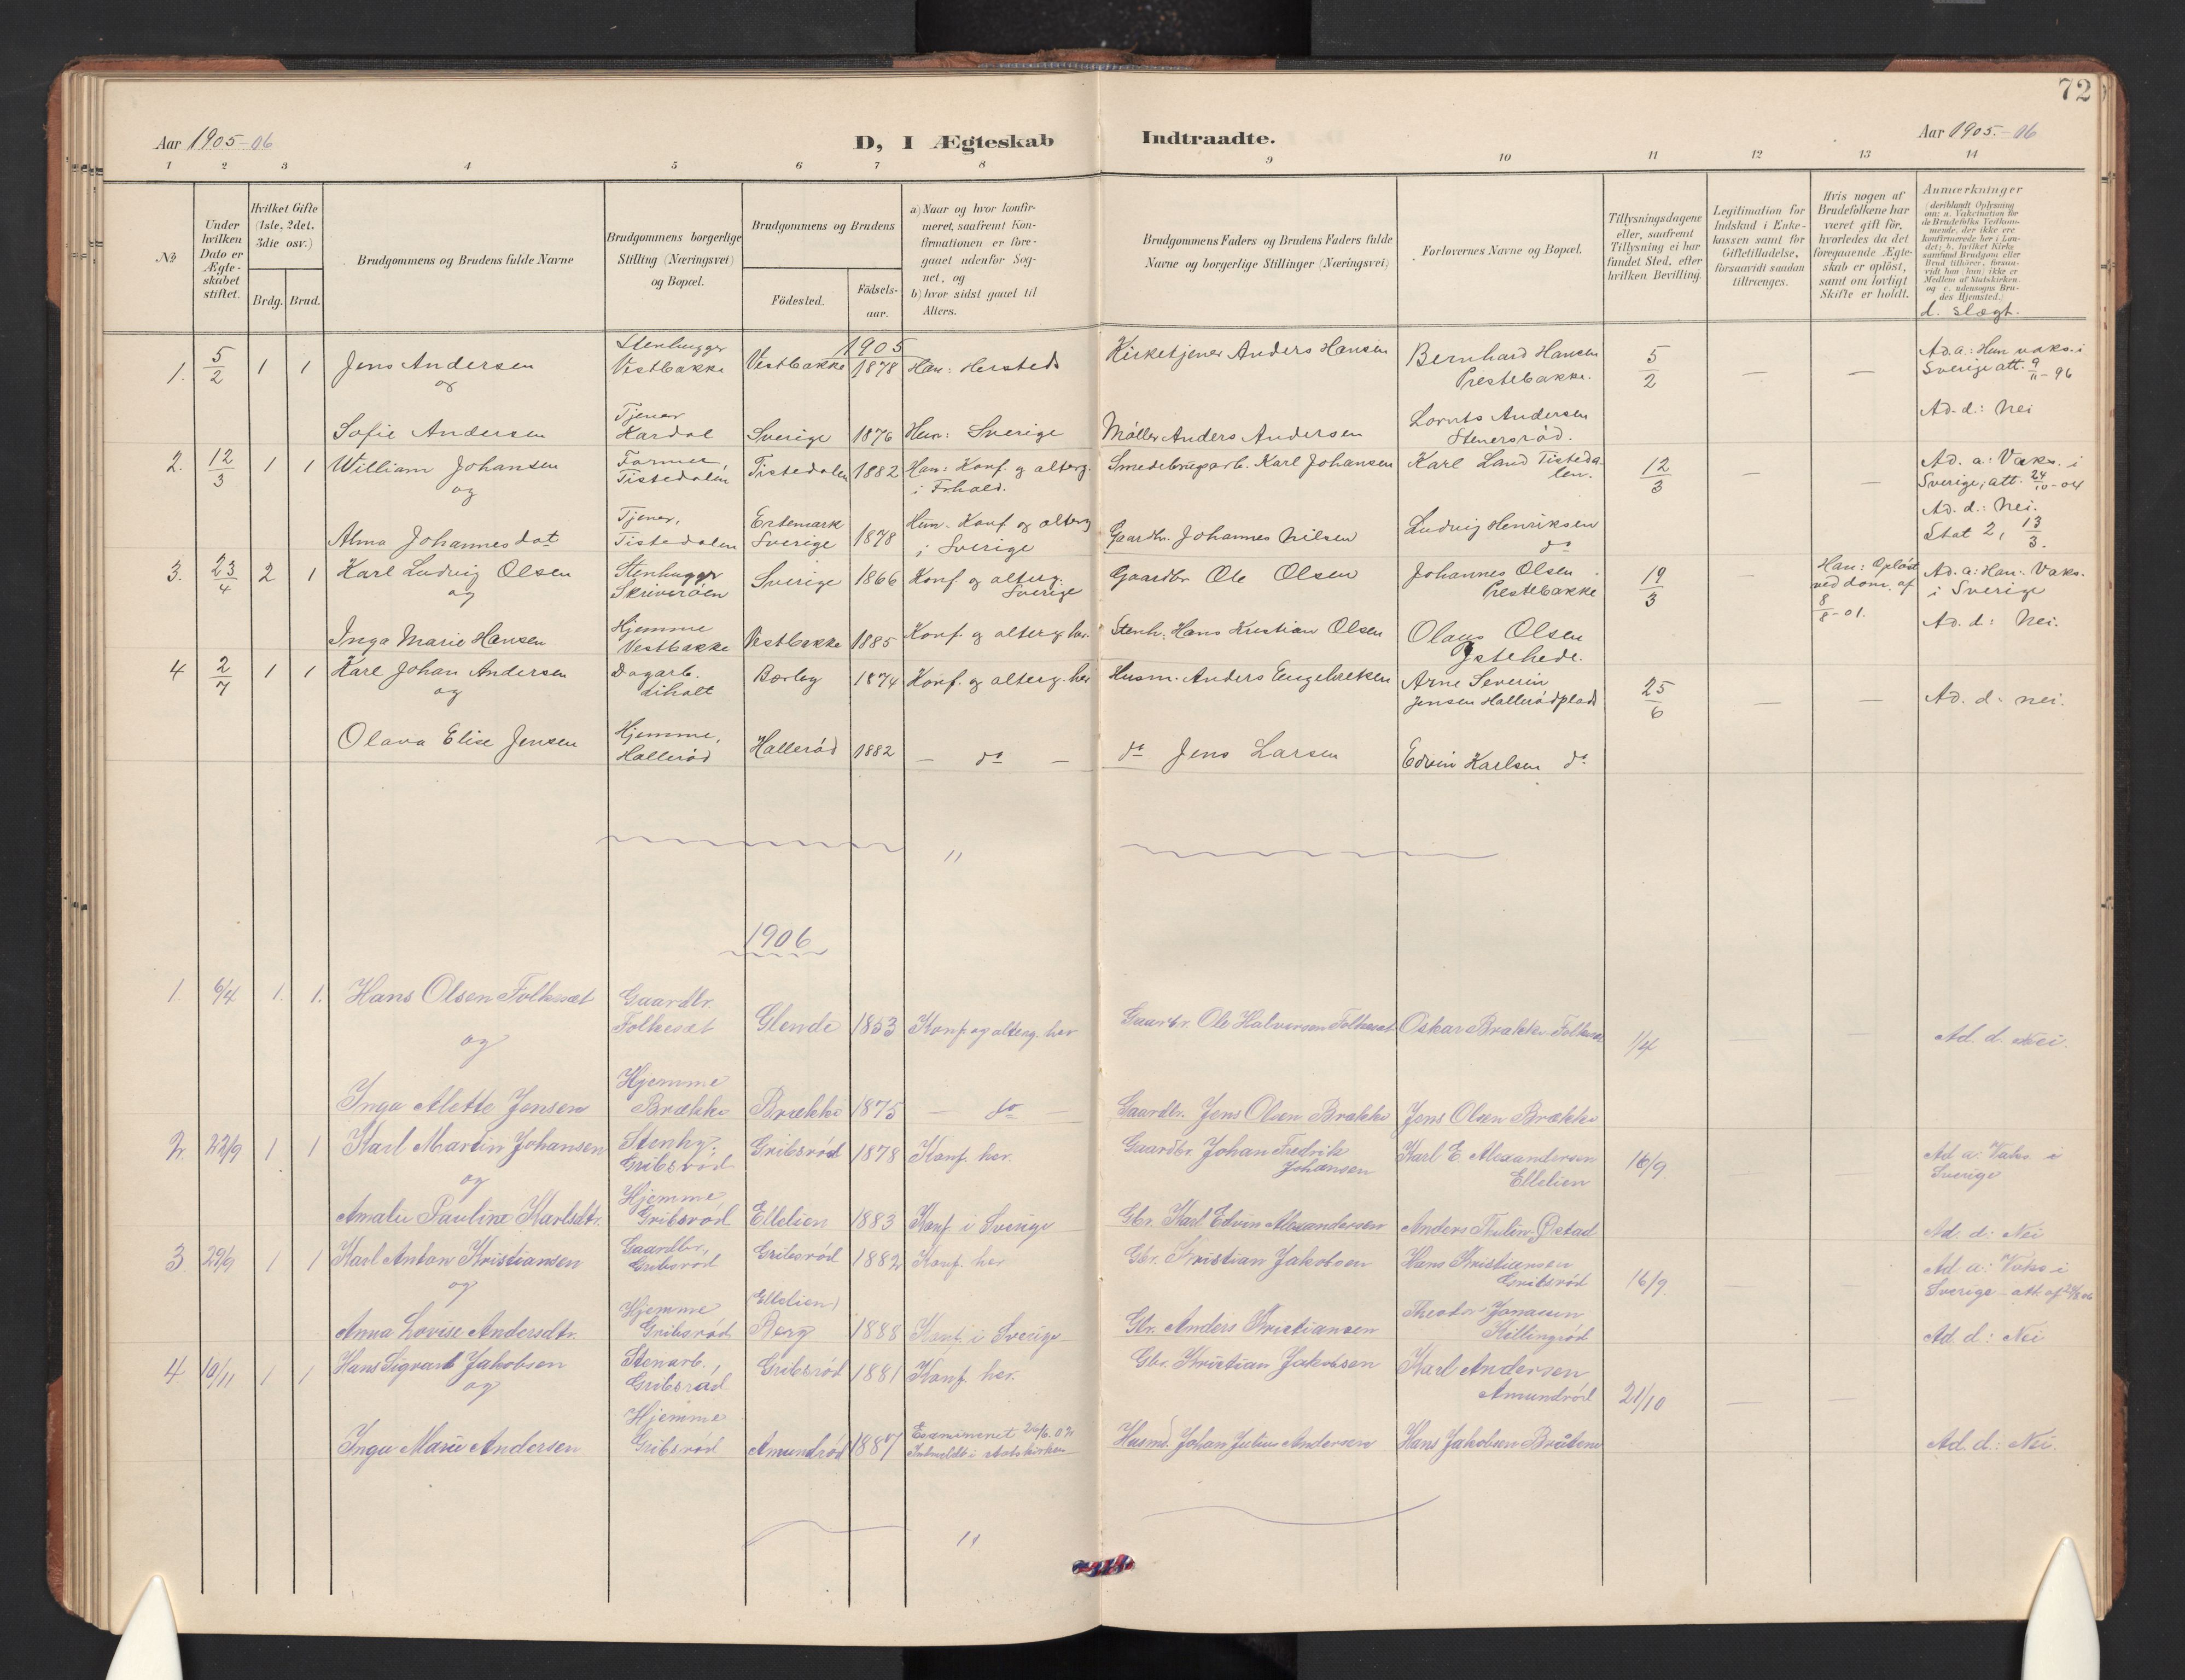 72
Aar 1905-06
D, I Ægteskab Indtraadte.
Aar 1905.-06
1 2 3 4 5 6 7 8 9 10 11 12 13 14
No
Under hvilken Dato er Ægteskabet stiftet.
Hvilket Gifte (1ste, 2det, 3die osv.)
Brdg. Brud.
Brudgommens og Brudens fulde Navne
Brudgommens borgerlige Stilling (Næringsvei) og Bopæl.
Brudgommens og Brudens
Födested. Födselsaar.
a) Naar og hvor konfirmeret, saafremt Konfirmationen er foregaaet udenfor Sognet, og
b) hvor sidst gaaet til Alters.
Brudgommens Faders og Brudens Faders fulde Navne og borgerlige Stillinger (Næringsvei)
Forlovernes Navne og Bopæl.
Tillysningsdagene eller, saafremt Tillysning ei har fundet Sted, efter hvilken Bevilling.
Legitimation for Indskud i Enkekassen samt for Giftetilladelse, forsaavidt saadan tiltrænges.
Hvis nogen af Brudefolkene har været gift för, hvorledes da det foregaaende Ægteskab er oplöst, samt om lovligt Skifte er holdt.
Anmærkninger (deriblandt Oplysning om: a. Vakcination for de Brudefolks Vedkommende, der ikke ere konfirmerede her i Landet; b. hvilket Kirkesamfund Brudgom eller Brud tilhörer, forsaavidt han (hun) ikke er Medlem af Statskirken. og c. udensogns Brudes Hjemsted.)
d. slægt.
1905
1. 5/2 1 1 Jens Andersen Stenhugger Vestbakke Vestbakke 1878 Han: Hersteds Kirketjener Anders Hansen Bernhard Hansen Prestebakke. 5/2 — — Ad. a.: Hun vaks. i Sverige att. 9/11-96
og
Sofie Andersen Tjener Kardal Sverige 1876 Hun: Sverige Møller Anders Andersen Andersen Stenersröd. Ad. d.: Nei
2. 12/3 1 1 William Johansen Former, Tistedalen Tistedalen 1882 Han: Konf. og alterg. i Frhald. Smedebrugarb. Karl Johansen Karl Land Tistedalen. 12/3 — — Ad. a: Vaks. i Sverige, att. 24/10-04
og
Alma Johannesdat Tjener, Tistedalen Sverige 1878 Hun. Konf og alterg i Sverige Gaardbr. Johannes Nilsen Ludvig Henriksen do Ad. d.: Nei. Stat 2, 13/3.
3. 23/4 2 1 Karl Ludvig Olsen Stenhugger Skriveröen Sverige 1866 Konf og alterg. Sverige Gaardbr Ole Olsen Johannes Olsen Prestebakke 19/3 — Han: Opløst ved dom. af 8/8-01. Ad. a: Han: Vaks. i Sverige
og
Inga Marie Hansen Hjemme Vestbakke Vestbakke 1885 Konf. og alterg. her. Stenh. Hans Kristian Olsen Olaus Olsen Ystehede. Ad. d: Nei.
4 2/7 1 1 Karl Johan Andersen Dagarb. Liholt Børby 1874 Konf. og alterg. her Husm. Anders Engebretsen Arne Severin Jensen Hallerödplads 25/6 — — Ad. d. nei.
og
Olava Elise Jensen Hjemme, Halleröd Halleröd 1882 — do — do Jens Larsen Edvin Karlsen do
"
1906
1. 6/4 1. 1. Hans Olsen Folkesæt Gaardbr. Folkesæt Glende 1853 Konf. og alterg. her Gaardbr. Ole Halvorsen Folkesæt Oskar Brække Folkesæt 1/4 — — Ad. d. Nei.
og
Inga Alette Jensen Hjemme Brække Brække 1875 — do — Gaardbr. Jens Olsen Brække Jens Olsen Brække
2. 22/9 1 1 Karl Martin Johansen Stenhg. Gribsröd Gribsröd 1878 Konf. her. Gaardbr. Johan Fredrik Johansen Karl E. Alexandersen Ellelien 16/9 — Ad a: Vaks i Sverige
og
Amalie Pauline Karlsdtr. Hjemme Gribsröd Ellelien 1883 Konf. i Sverige Gbr. Karl Edvin Alexandersen Anders Thulin Ad. d: Nei
3 29/9 1 1 Karl Anton Kristiansen Gaardbr, Gribsröd Gribsröd 1882 Konf. her Gbr. Kristian Jakobsen Hans Kristiansen Gribsröd 16/9 — — Ad a: Vaks i Sverige att. af
og
Anna Lovise Andersdtr. Hjemme Gribsröd (Ellelien) Berg 1888 Konf. i Sverige Gbr. Anders Kristiansen Theodor Jonassen Killingröd Ad d: Nei
4 10/11 1 1 Hans Sigvart Jakobsen Stenarb., Gribsröd Gribsröd 1881 Konf. her. Gbr. Kristian Jakobsen Karl Andersen Amundröd 21/10 — —
og
Inga Marie Andersen Hjemme Gribsröd Amundröd 1887 Examineret Indmeldt i statskirken Husmd. Johan Julius Andersen Hans Jakobsen Bråtene Ad. d.: Nei.
"